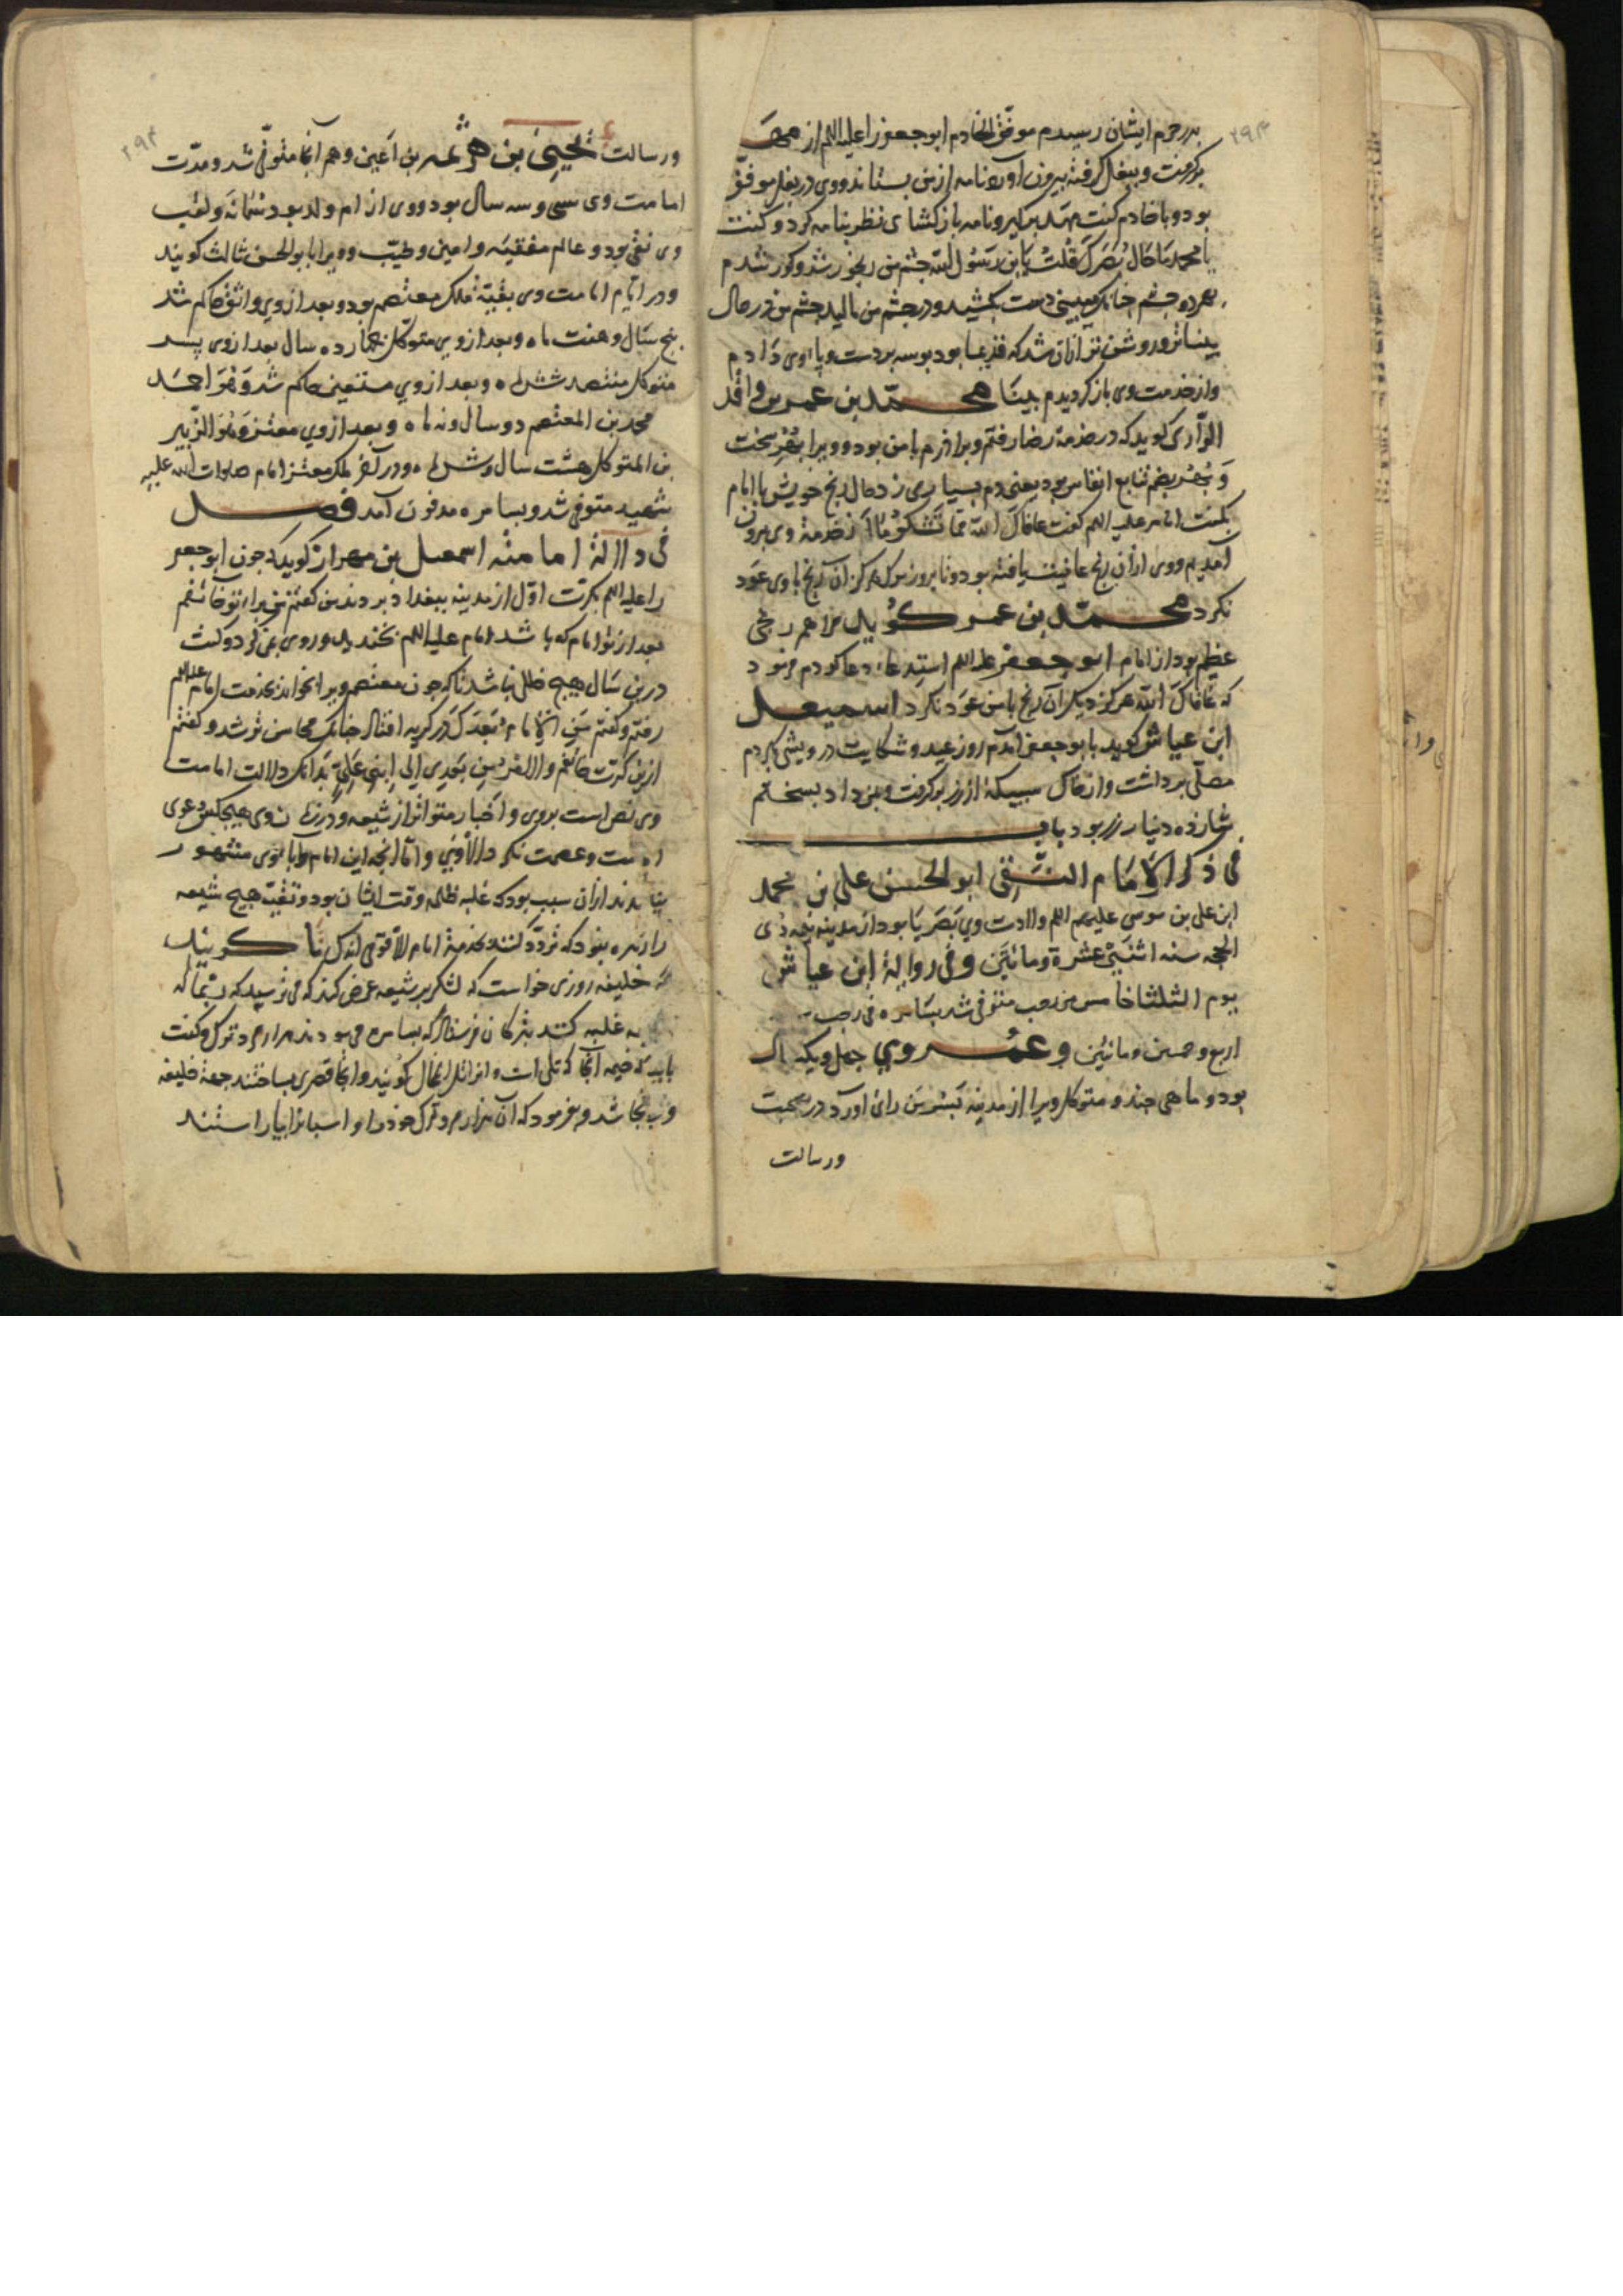 ۲۹۳
بدر حرم ایشان رسیدم موفق الخادم ابو جعفر را علیه اللم از مهد
برگرفت و ببغل گرفته بیرون آورد نامه از من بستاند و وی در بغل موفق
بود و با خادم گفت مهد بر گیر و نامه باز کشای نظر بنامه کرد و گفت
یا محمد ما حال بصرک قلت یا ابن رسول الله چشم من رنجور شد و کور شدم
بهر دو چشم چنانک میبینی دست بکشید و در چشم من مالید چشم من در حال
بیناتر و روشن تر ازان شد که قدیما بود بوسه بر دست و پا اوی دادم
و از خدمت وی باز گردیدم بینا محمد بن عمر بن واقد
الرازی گوید که در خدمة رضا رفتم و برادرم با من بود و ویرا بهر سخت
و بهر بضم تتابع انفاس بود یعنی دم بسیاری زد حال رنج خویش با امام
بگفت امام علیه اللم گفت عافاک الله مما تشکو ما از خدمة وی بیرون
آمدیم و وی ازان رنج عافیت یافته بود و تا بروز مرگ هرگز آن رنج با وی عود
نکرد محمد بن عمر گوید مرا هم رنجی
عظیم بود از امام ابو جعفر علیه اللم استدعاء دعا کردم فرمود
که عافاک الله هرگز دیگر آن رنج با من عود نکرد اسمیعل
ابن عیاش گوید با ابو جعفر آمدم روز عید و شکایت درویشی بکردم
مصلی برداشت و از خاک سبیکه از زر برگرفت و بمن داد بسختم
شانزده دینار زر بود باب
فی ذکر الامام النقی ابو الحسن علی بن محمد
ابن علی بن موسی علیهم اللم ولادت وی بصریا بود از مدینه نیمه ذی
الحجه سنه اثنتی عشرة و مائتین و فی روایة ابن عیاش
یوم الثلثا خامس من رجب متوفی شد بسامره فی رجب
اربع و خمسین و مائتین و عمر وی چهل و یک سال
بود و ماهی چند و متوکل ویرا از مدینه بسر من رای آورد در صحبت
ورسالت
۲۹۴
ورسالت یحیی بن هرثمه بن اعین و هم آنجا متوفی شد و مدت
امامت وی سی و سه سال بود و وی از ام ولد بود سمانه و لقب
وی نقی بود و عالم و فقیه و امین و طیب و ویرا ابو الحسن ثالث گویند
و در ایام امامت وی بقیة ملک معتصم بود و بعد از وی واثق حاکم شد
پنج سال و هفت ماه و بعد از وی متوکل چهارده سال بعد از وی پسر
متوکل منتصر شش ماه و بعد از وی مستعین حاکم شد و هو احمد
محمد بن المعتصم دو سال و نه ماه و بعد از وی معتز و هو الزبیر
بن المتوکل هشت سال و شش ماه و در آخر ملک معتز امام صلوات الله علیه
شهید متوفی شد و بسامره مدفون آمد فصل
فی دلالة امامته اسمعیل بن مهران گوید که چون ابو جعفر
را علیه اللم بکرت اول از مدینه ببغداد بردند من گفتم من برای تو خائفم
بعد از تو امام که باشد امام علیه اللم بخندید و روی بمن کرد و گفت
درین سال هیچ خللی نباشد تا که چون معتصم ویرا بخواند بخدمت امام علیه اللم
رفتم و گفتم من الامام بعدک در گریه افتاد چنانک محاسن تر شد و گفتم
ازین کرت خائفم و الامر من بعدی الی ابنی علی بدانک دلالت امامت
وی نص است بر وی و اخبار متواتر از شیعه و در زمان وی هیچکس دعوی
امامت و عصمت نکرد الا وی و اما آنچه این امام و آبا وی مشهور
نیامدند ازان سبب بود که غلبه ظلمه وقت ایشان بود و تقیه هیچ شیعه
را زهره نبود که تردد کنند بخدمة امام الا قومی اندک تا گویند
که خلیفه روزی خواست که لشکر بر شیعه عرض کند که می ترسید که نباید که
غلبه کنند ترکان فرسنا که بسامره می بودند هزار مرد ترک و گفت
باید که خیمه آنجا که تلی است و آنرا تل المخال گویند و آنجا قصری بساختند جهة خلیفه
وی آنجا شد و بفرمود که آن هزار مرد ترک خود را و اسبان را بیاراستند